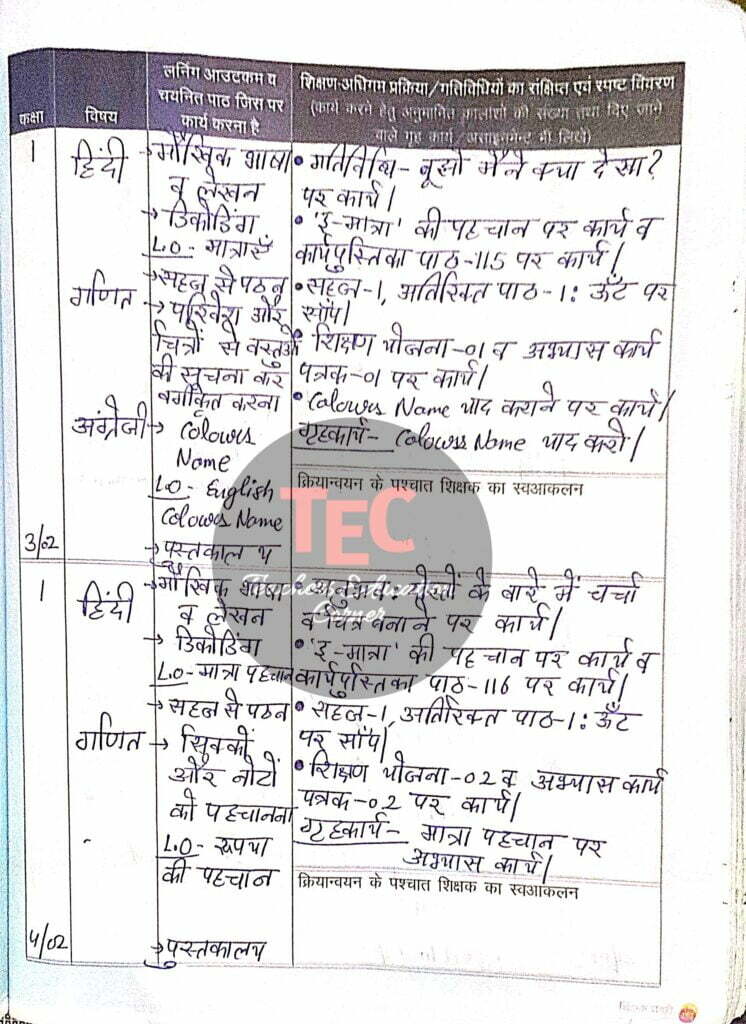 कक्षा
विषय
लर्निंग आउटकम व
चयनित पाठ जिस पर
कार्य करना है
शिक्षण-अधिगम प्रक्रिया/गतिविधियों का संक्षिप्त एवं स्पष्ट विवरण
(कार्य करने हेतु अनुमानित कालांशों की संख्या तथा दिए जाने
वाले गृह कार्य/असाइनमेन्ट भी लिखें)
1
हिंदी
→ मौखिक भाषा
व लेखन
→ डिकोडिंग
L.O - मात्राएँ
→ सहज से पठन
• गतिविधि - बूझो मैंने क्या देखा?
पर कार्य।
• 'इ-मात्रा' की पहचान पर कार्य व
कार्यपुस्तिका पाठ-115 पर कार्य।
• सहज-1, अतिरिक्त पाठ-1: ऊँट पर
सॉंप।
गणित
→ परिवेश और
चित्रों से वस्तुओं
की सूचना कर
वर्गीकृत करना
शिक्षण योजना-01 व अभ्यास कार्य
पत्रक-01 पर कार्य।
अंग्रेजी
→ Colowrs
Name
L.O - English
Colowrs Name
→ पुस्तकालय
• Colowrs Name याद कराने पर कार्य।
गृहकार्य- Colowrs Name याद करो।
क्रियान्वयन के पश्चात शिक्षक का स्वआकलन
3/02
TEC
Teachers Education
Corner
1
हिंदी
→ मौखिक भाषा
व लेखन
→ डिकोडिंग
L.O - मात्रा पहचान
→ सहज से पठन
के बारे में चर्चा
व चित्र बनाने पर कार्य।
• 'इ-मात्रा' की पहचान पर कार्य व
कार्यपुस्तिका पाठ-116 पर कार्य।
• सहज-1, अतिरिक्त पाठ-1: ऊँट
पर सॉंप।
गणित
→ सिक्कों
और नोटों
को पहचानना
L.O - रूपया
की पहचान
→ पुस्तकालय
• शिक्षण योजना-02 व अभ्यास कार्य
पत्रक-02 पर कार्य।
गृहकार्य- मात्रा पहचान पर
अभ्यास कार्य।
क्रियान्वयन के पश्चात शिक्षक का स्वआकलन
4/02